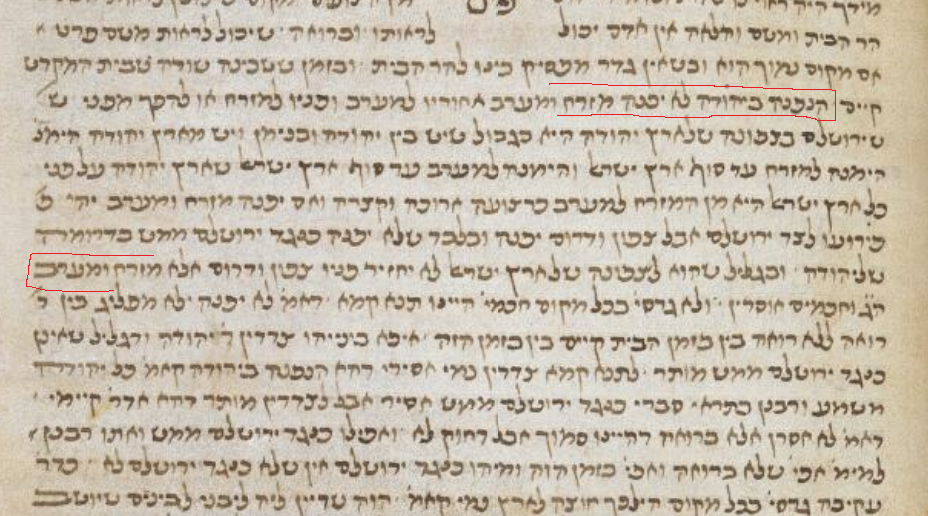 הר הבית ומשם והלאה אין אדם יכול לראותו וברואה שיכול לראות משם פרט א
אם מקום נמוך הוא ובשאין גדר מפסיק בינו להר הבית ובזמן ששכינה שורה שבית המקדש
קיים הנפנה ביהודה לא יפנה מזרח ומערב אחוריו למערב ופניו למזרח או להפך מפני ש
שירושלם בצפונה שלארץ יהודה היא בגבול שיש בין יהודה ובנימן ויש מארץ יהודה הימנ
הימנה למזרח עד סוף ארץ ישרא והימנה למערב עד סוף ארץ ישרא שארץ יהודה על פני
כל ארץ ישרא היא מן המזרח למערב כרצועה ארוכה וקצרה ואם יפנה מזרח ומערב יהי פ
פירועו לצד ירושלם אבל צפון ודרום יפנה ובלבד שלא יפנה כנגד ירושלם ממש בדרומה
שליהודה ובגליל שהוא לצפונה שלארץ ישרא לא יחזיר פניו צפון ודרום אלא מזרח ומערב
וחכמים אוסרין ולא גרסי בכל מקום חכמי היינו תנא קמא דאמ לא יפנה לא מפליג בין ר
רואה ללא רואה בין בזמן הבית קיים בין בזמן הזה איכא בינייהו צדדין דיהודה ודגליל שאינן
כנגד ירושלם ממש מותר לתנא קמא צדדין נמי אסירי דהא הנפנה ביהודה קאמ כל יהודה
משמע ורבנן בתראי סברי כנגד ירושלם ממש אסיר אבל לצדדין מותר דהא אדר קיימי
דאמ לא אסרו אלא ברואה דהיינו סמוך אבל רחוק לא ואפילו כנגד ירושלם ממש ואתו רבנן
למימ אפי שלא ברואה ואפי בזמן הזה ומיהו כנגד ירושלם אין שלא כנגד ירושלם לא
עקיבה גרסי בכל מקום הילכך חוצה לארץ נמי קאמ הוה שדיין ליה ליבני לבינים שיושב